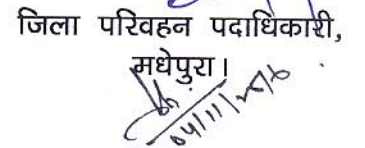 जिला परिवहन पदाधिकारी,
मधेपुरा।
04/11/